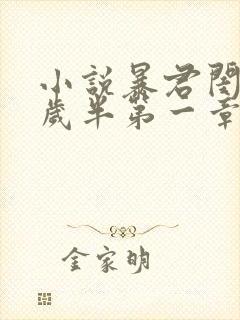 小說暴君閨
歲半第一章
金家明